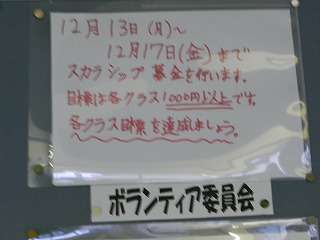 12月13日(月)～
12月17日(金)まで
スカラシップ募金を行います。
目標は各クラス1000円以上です。
各クラス目標を達成しましょう。
ボランティア委員会